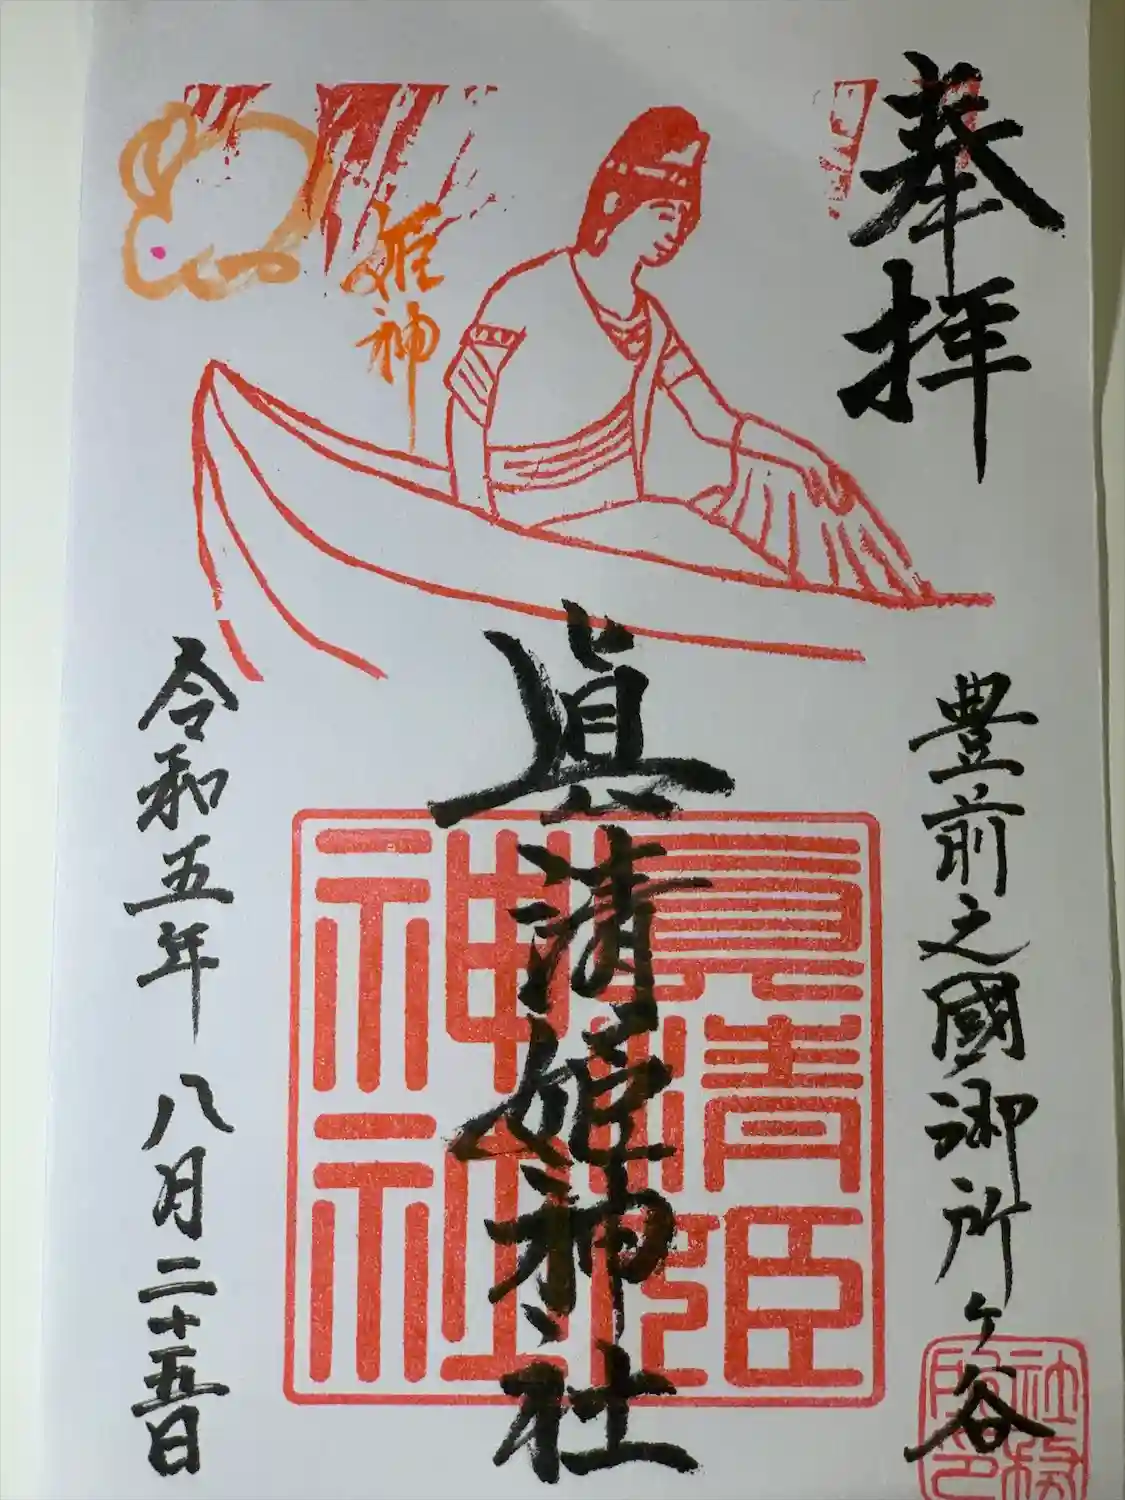 奉拝
豊前之國御所ヶ谷
眞清姫神社
眞清姫
神社
姫神
令和五年 八月二十五日